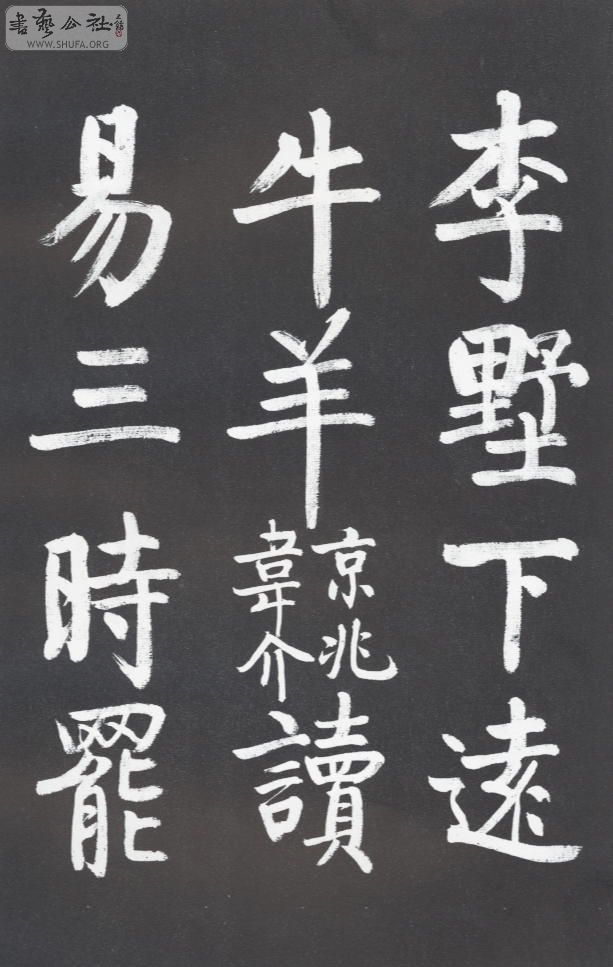 李墅下遠
牛羊京兆韋介讀
易三時罷
書藝公社
WWW.SHUFA.ORG